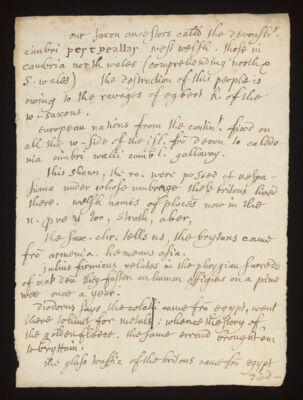 our saxon ancestors calld the devonsh^r.
cimbri west welsh. those in
cambria north wales (comprehending north &
S. wales) the destruction of this people is
owing to the ravages of egbert k. of the
w-saxons.
european nations from the contin^t. fixd on
all the w-side of the isl. fro devon to caledo
nia cimbri walli cumb^l. galloway.
this shows, the ro. were possesd of vespa-
siana under whose umbrage these britons lived
there. welsh names of places now in the
n. tor, strath, aber,
the sax. chr. tells us, the brytons came
fro armenia. he means asia.
julius firmicus relates in the phrygian sacreds
of they fasten an human effigies on a pine
tree once a year.
Diodorus says the came fro egypt, went
there to hunt for metals: whence the story of
the golden fleece. the same errand brought em
to bryttain.
the glass traffic of the britons came fro egypt